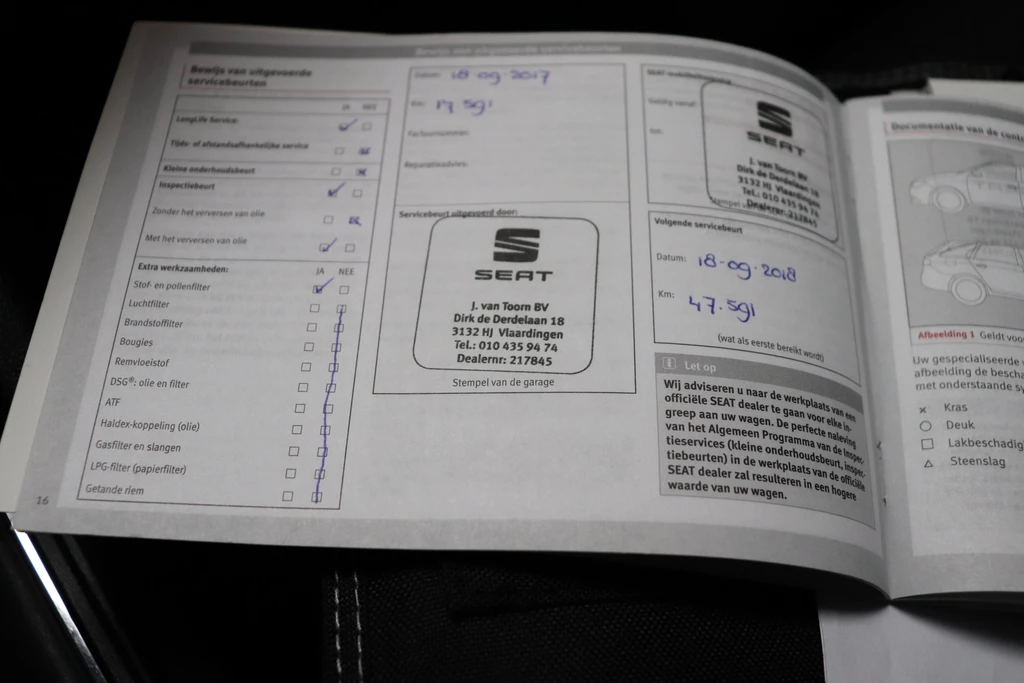 Bewijs van uitgevoerde servicebeurten
Bewijs van uitgevoerde
servicebeurten
JA NEE
LongLife Service:
Tijds- of afstandsafhankelijke service
Kleine onderhoudsbeurt
Inspectiebeurt
Zonder het verversen van olie
Met het verversen van olie
Extra werkzaamheden:
JA NEE
Stof- en pollenfilter
Luchtfilter
Brandstoffilter
Bougies
Remvloeistof
DSG®: olie en filter
ATF
Haldex-koppeling (olie)
Gasfilter en slangen
LPG-filter (papierfilter)
Getande riem
16
Datum: 18-09-2017
Km: 17.591
Factuurnummer:
Reparatieadvies:
Servicebeurt uitgevoerd door:
SEAT
J. van Toorn BV
Dirk de Derdelaan 18
3132 HJ Vlaardingen
Tel.: 010 435 94 74
Dealernr: 217845
Stempel van de garage
Geldig vanaf:
tot:
SEAT
J. van Toorn BV
Dirk de Derdelaan 18
3132 HJ Vlaardingen
Tel.: 010 435 94 74
Stempel
Dealernr: 217845
Volgende servicebeurt
Datum: 18-09-2018
Km: 47.591
(wat als eerste bereikt wordt)
i Let op
Wij adviseren u naar de werkplaats van een
officiële SEAT dealer te gaan voor elke in-
greep aan uw wagen. De perfecte naleving
van het Algemeen Programma van de Inspec-
tieservices (kleine onderhoudsbeurt, inspec-
tiebeurten) in de werkplaats van de officiële
SEAT dealer zal resulteren in een hogere
waarde van uw wagen.
Documentatie van de
Afbeelding 1 Geldt
Uw gespecialiseerde
afbeelding de
met onderstaande
Kras
Deuk
Lakbeschadig
Steenslag